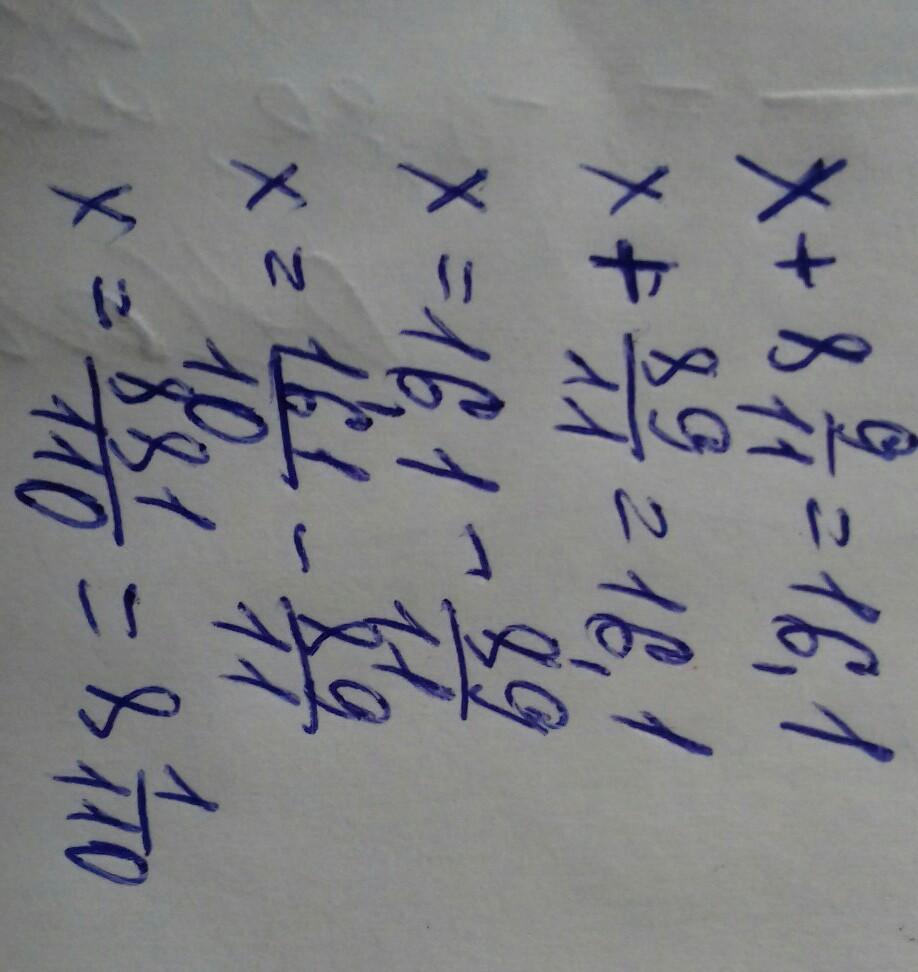 x + 8 9/11 = 16,1
x + 89/11 = 16,1
x = 16,1 - 89/11
x = 161/10 - 89/11
x = 881/110 = 8 1/110